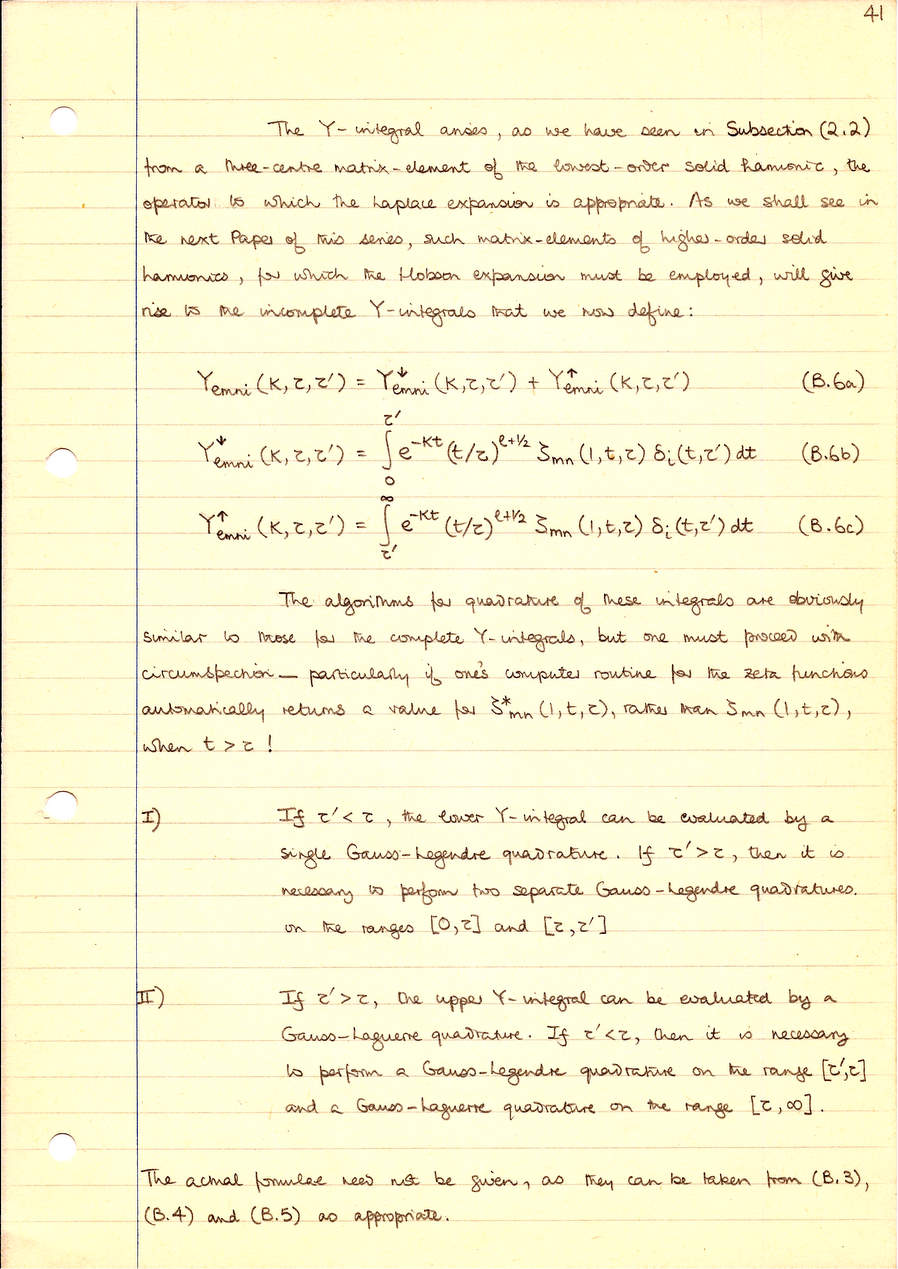 41
The Y-integral arises, as we have seen in Subsection (2.2)
from a three-centre matrix-element of the lowest-order solid harmonic, the
operator to which the Laplace expansion is appropriate. As we shall see in
the next Paper of this series, such matrix-elements of higher-order solid
harmonics, for which the Hobson expansion must be employed, will give
rise to the incomplete Y-integrals that we now define:
Yℓmni (K,τ,τ') = Y↓ℓmni (K,τ,τ') + Y↑ℓmni (K,τ,τ') (B.6a)
Y↓ℓmni (K,τ,τ') = ∫₀^τ' e^-Kt (t/τ)^ℓ+1/2 ζmn (1,t,τ) δi (t,τ') dt (B.6b)
Y↑ℓmni (K,τ,τ') = ∫τ'^∞ e^-Kt (t/τ)^ℓ+1/2 ζmn (1,t,τ) δi (t,τ') dt (B.6c)
The algorithms for quadrature of these integrals are obviously
similar to those for the complete Y-integrals, but one must proceed with
circumspection — particularly if one's computer routine for the zeta functions
automatically returns a value for ζ*mn (1,t,τ), rather than ζmn (1,t,τ),
when t > τ !
I) If τ' < τ, the lower Y-integral can be evaluated by a
single Gauss-Legendre quadrature. If τ' > τ, then it is
necessary to perform two separate Gauss-Legendre quadratures.
on the ranges [0,τ] and [τ,τ']
II) If τ' > τ, the upper Y-integral can be evaluated by a
Gauss-Laguerre quadrature. If τ' < τ, then it is necessary
to perform a Gauss-Legendre quadrature on the range [τ',τ]
and a Gauss-Laguerre quadrature on the range [τ,∞].
The actual formulae need not be given, as they can be taken from (B.3),
(B.4) and (B.5) as appropriate.